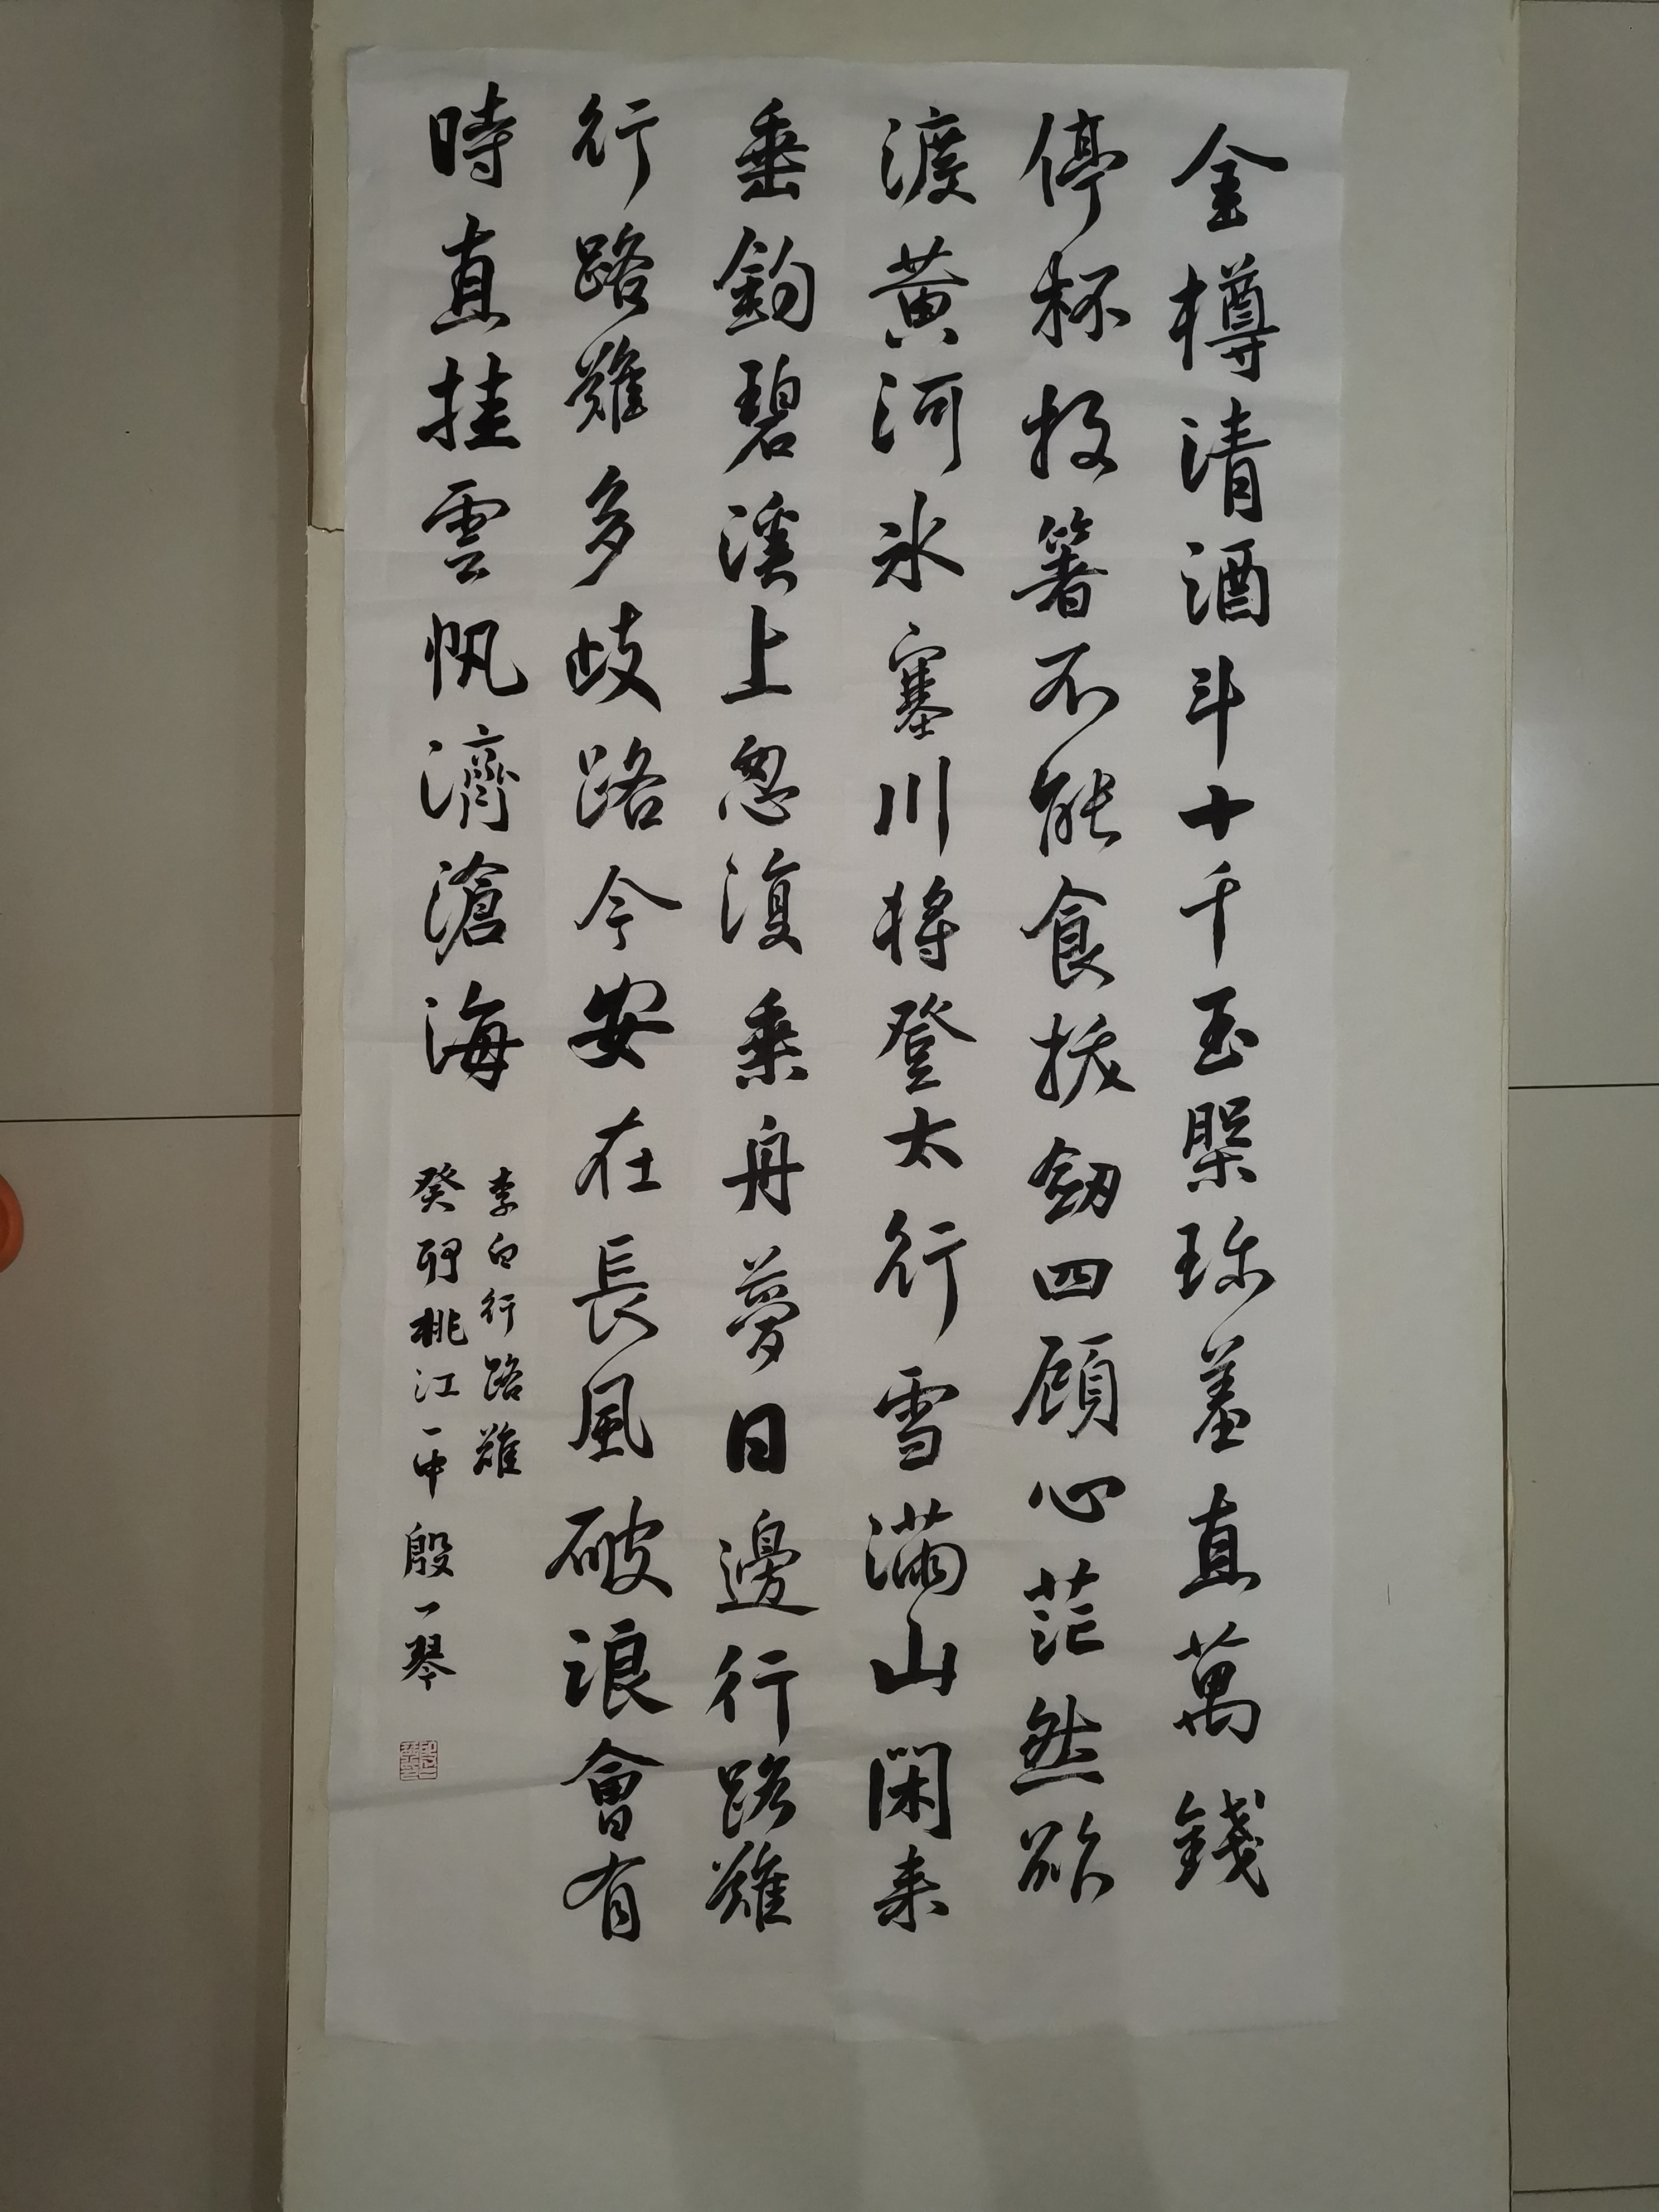 金樽清酒斗十千玉槃珎羞直萬錢
停杯投箸不能食拔劒四顧心茫然欲
渡黄河冰塞川将登太行雪滿山閑来
垂釣碧溪上忽復乗舟夢日邊行路難
行路難多歧路今安在長風破浪會有
時直挂雲帆濟滄海
李白行路難
癸卯桃江一中殷一琴